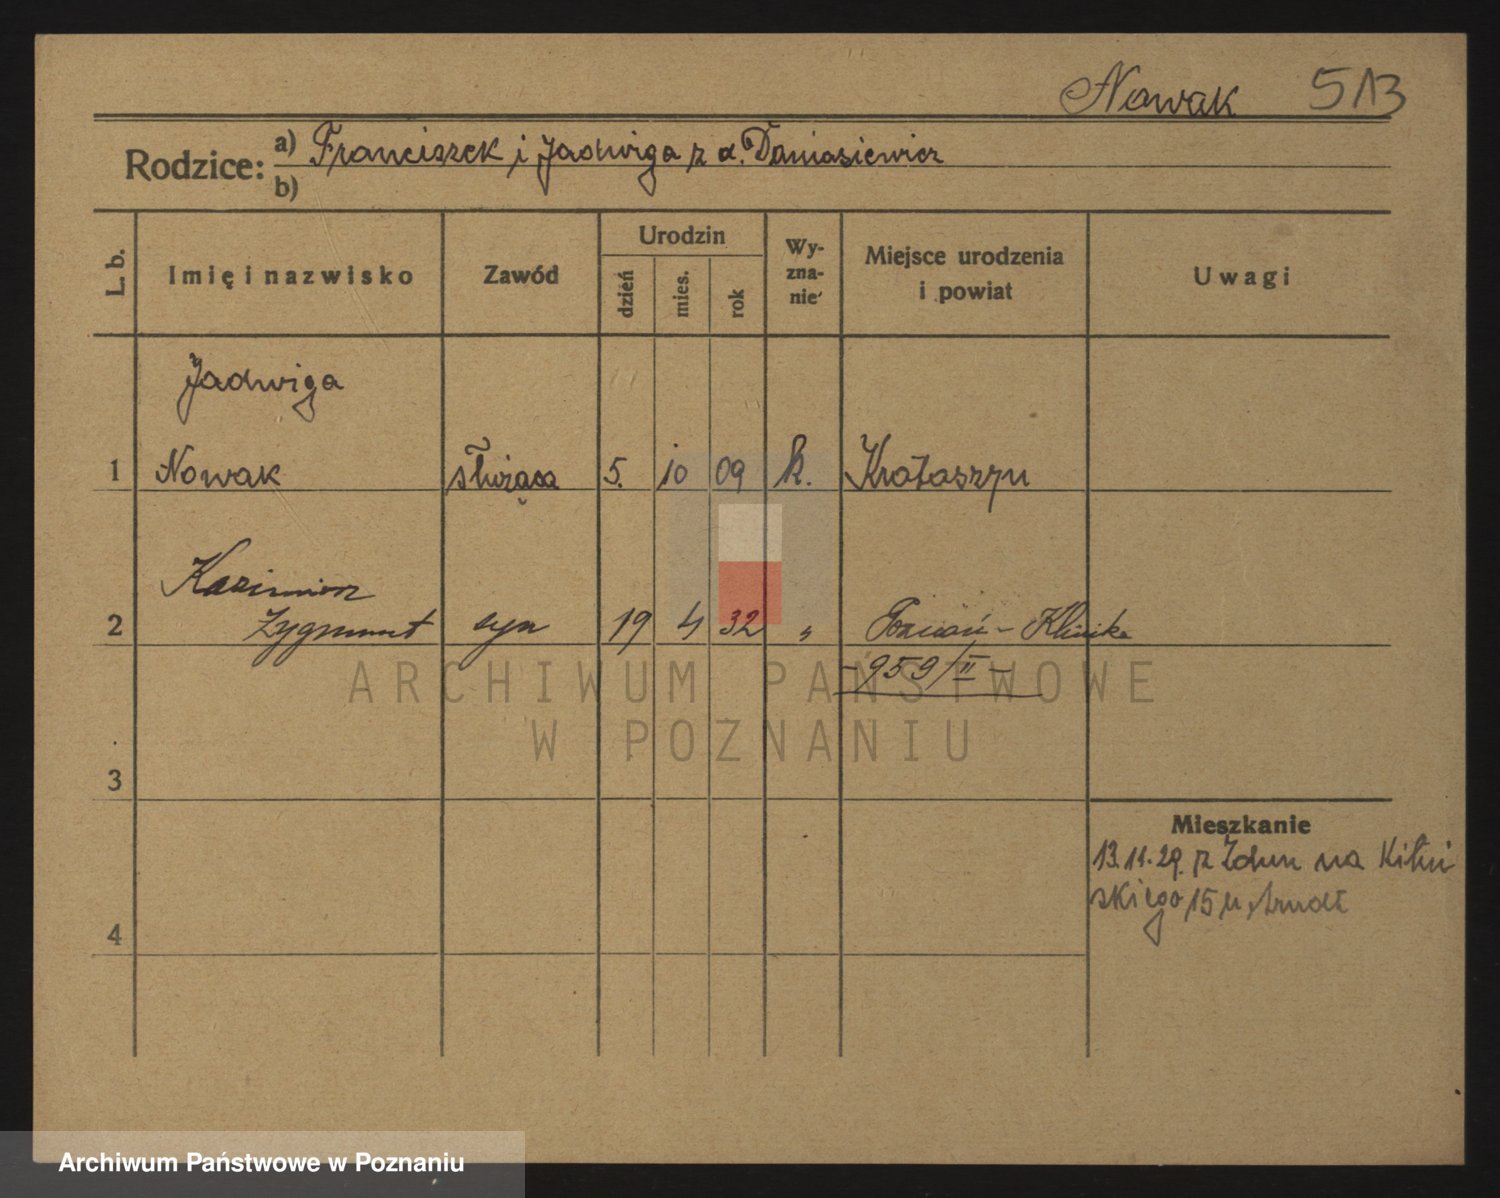 Nowak 513
Rodzice: a) Franciszek i Jadwiga z d. Damasiewicz
b)
L. b. Imię i nazwisko Zawód Urodzin dzień mies. rok Wy-zna-nie Miejsce urodzenia i powiat Uwagi
Jadwiga
1 Nowak służąca 5. 10 09 k. Krotoszyn
Kazimierz
2 Zygmunt syn 19 4 32 „ Poznań - Klinika
- 959/II -
ARCHIWUM PAŃSTWOWE
W POZNANIU
3
Mieszkanie
13.11.29. z Zdun na Kiliń
skiego 15 u
4
Archiwum Państwowe w Poznaniu